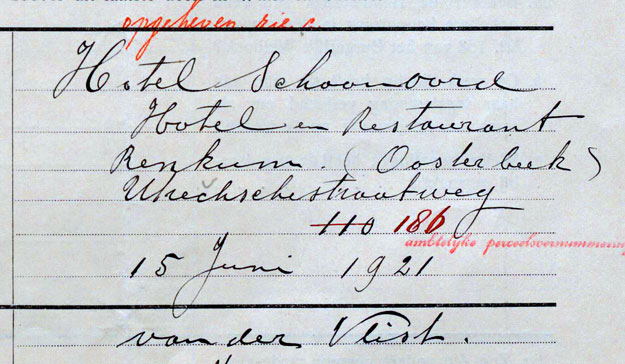 opgeheven zie c.
Hotel Schoonoord
Hotel en Restaurant
Renkum. (Oosterbeek)
Utrechschestraatweg
110 186
ambtelijke perceelsvernummering
15 Juni 1921
van der Vlist.